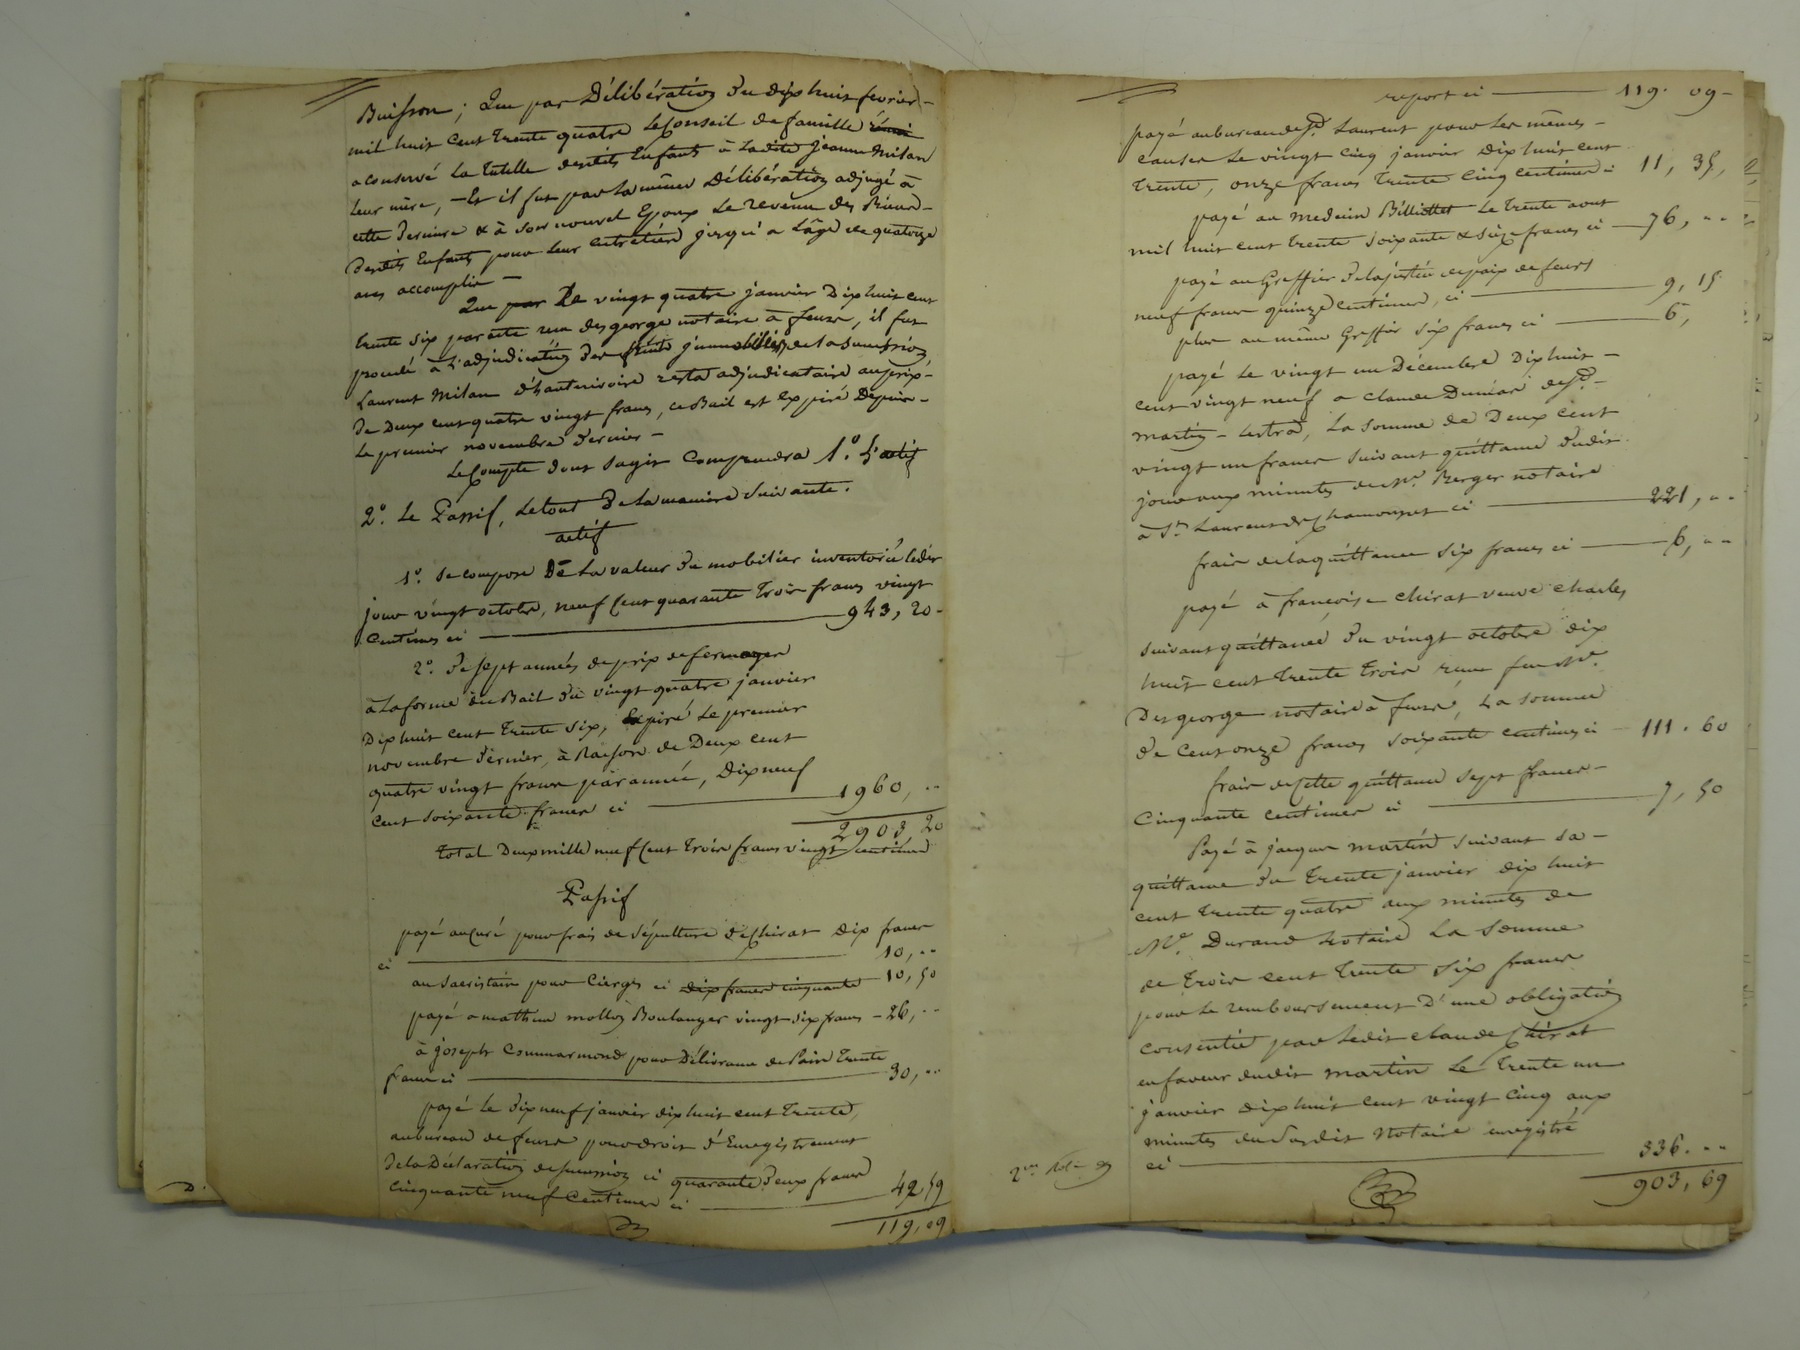 Buisson; Que par Délibération du dix huit fevrier
mil huit Cent Trente quatre Le Conseil de famille réuni
a conservé La Tutelle desdits Enfants à Ladite jeanne Milan
leur mère, – Et il fut par La même Délibération adjugé à
cette Derniere & à son nouvel Epoux Le revenu des Biens
Desdits Enfants pour leur entretien jusqu'à L'âge de quatorze
ans accomplis –
Que par Le vingt quatre janvier Dix huit cent
trente six par acte reçu desgeorge notaire à feurs, il fut
procédé à L'adjudication des immeubles de la succession,
Laurent Milan d'hauterivoire resta adjudicataire au prix
de Deux cent quatre vingt francs, ce Bail est Expiré Depuis
Le premier novembre dernier –
Le Compte dont sagit Comprendra 1°. L'actif
2°. Le Passif, Le tout de La manière suivante.
actif
1°. Se compose De La valeur du mobilier inventorié ledit
jour vingt octobre, neuf Cent quarante Trois francs vingt
Centimes ci 943, 20
2°. De sept années de prix de fermages
à La forme du Bail du vingt quatre janvier
Dix huit cent Trente six, Expiré Le premier
novembre dernier, à Raison de Deux cent
quatre vingt francs par année, Dix neuf
cent soixante francs ci 1960, "
2903, 20
Total Deux mille neuf Cent Trois francs vingt centimes
Passif
payé au Curé pour frais de sépulture de Chirat dix francs
ci 10, "
au sacristain pour Cierges ci dix francs cinquante 10, 50
payé a mathieu mollon Boulanger vingt six francs – 26, "
à joseph Commarmond pour Délivrance de Pain Trente
francs ci 30, "
payé Le dix neuf janvier dix huit cent Trente,
au bureau de feurs pour droit d'Enregistrement
de la Déclaration de succession ci quarante deux francs
cinquante neuf Centimes ci 42, 59
119, 09
report ci 119. 09
payé au bureau de St. Laurent pour Les mêmes
causes Le vingt cinq janvier Dix huit cent
Trente, onze francs Trente Cinq centimes 11, 35,
payé au medecin Billiottet Le Trente aout
mil huit cent Trente soixante & seize francs ci 76, "
payé au Greffier de la justice de paix de feurs
neuf francs quinze centimes, ci 9, 15
plus au même Greffier six francs ci 6,
payé Le vingt un Décembre Dix huit
cent vingt neuf a claude de St.
martin Lestra, La somme de Deux cent
vingt un francs suivant quittance dudit
jour aux minutes de Me. Berger notaire
à St. Laurent de Chamousset ci 221, "
frais de la quittance six francs ci 6, "
payé à francoise Chirat veuve Charles
suivant quittance du vingt octobre dix
huit cent Trente Trois reçue feu Me.
Desgeorge notaire à feurs, La somme
de Cent onze francs soixante centimes ci 111. 60
frais de Cette quittance sept francs
Cinquante centimes ci 7, 50
Payé à jacques martin suivant sa
quittance du Trente janvier dix huit
cent Trente quatre aux minutes de
Me. Durand Notaire La Somme
de Trois cent Trente six francs
pour Le remboursement D'une obligation
consentie par Ledit claude Chirat
en faveur dudit martin Le Trente un
janvier dix huit cent vingt Cinq aux
minutes du Susdit Notaire enregistré
ci 336. "
903, 69